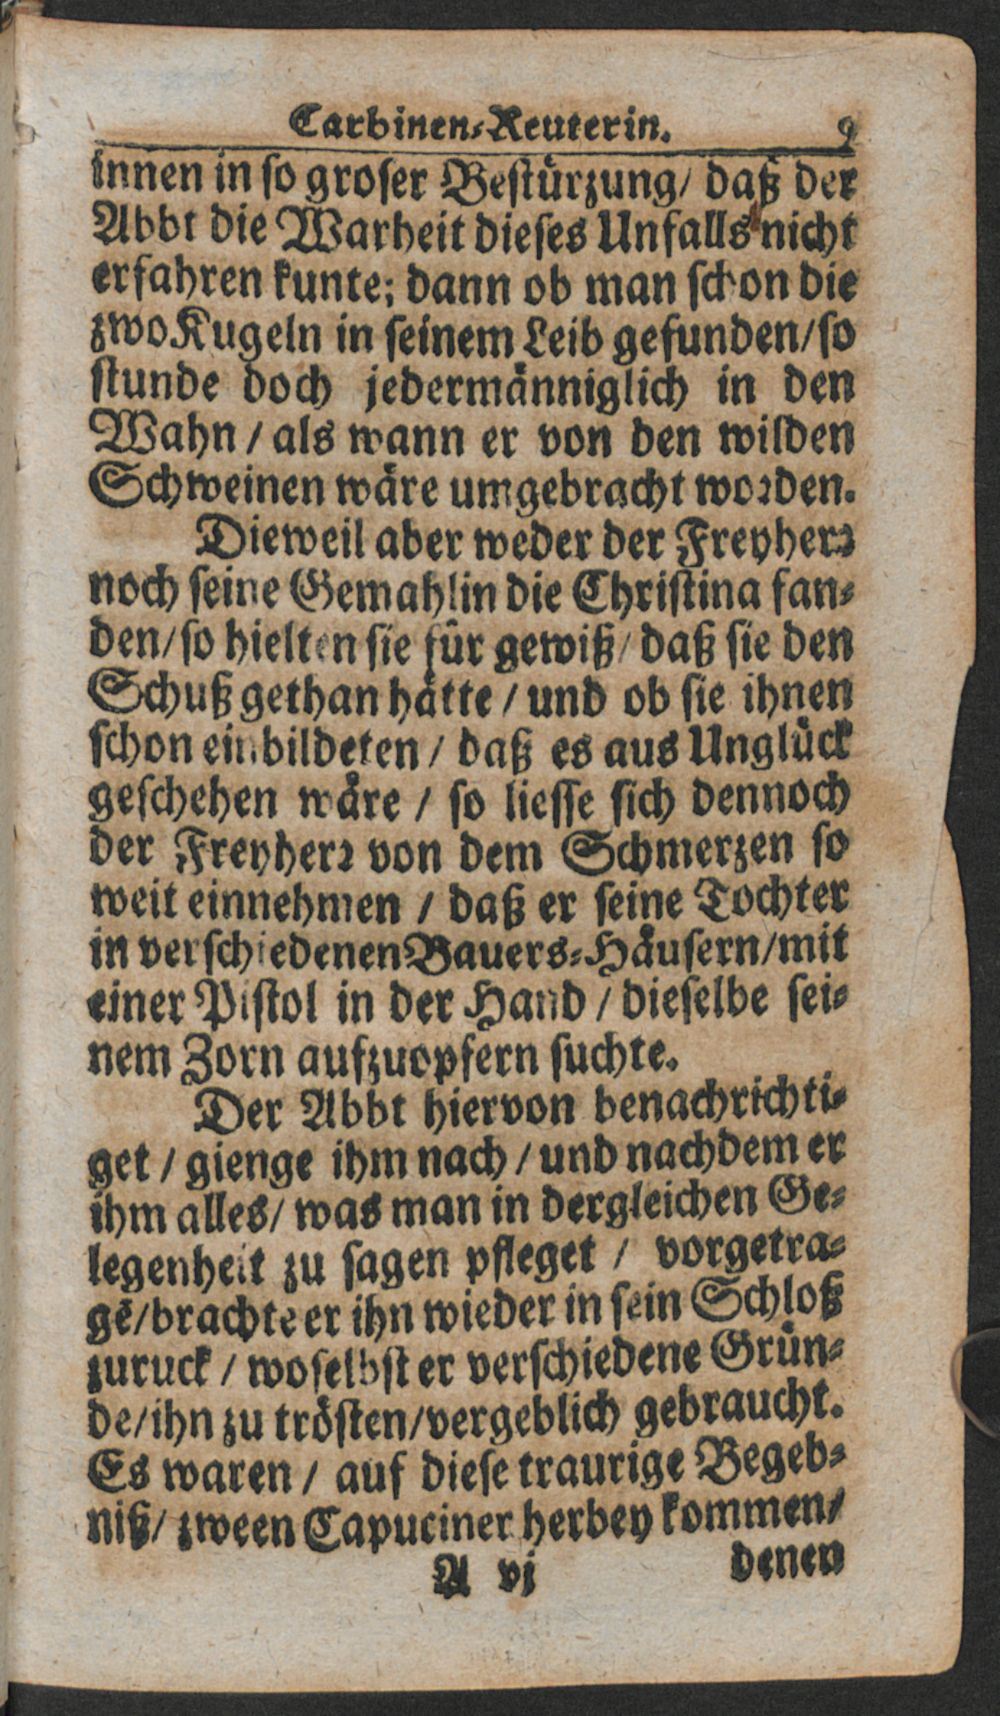 Carbinen-Reuterin. 9
innen in so groser Bestürzung/ daß der
Abbt die Warheit dieses Unfalls nicht
erfahren kunte; dann ob man schon die
zwo Kugeln in seinem Leib gefunden/so
stunde doch jedermänniglich in den
Wahn / als wann er von den wilden
Schweinen wäre umgebracht worden.
Dieweil aber weder der Freyherr
noch seine Gemahlin die Christina fan-
den/so hielten sie für gewiß/ daß sie den
Schuß gethan hätte / und ob sie ihnen
schon einbildeten / daß es aus Unglück
geschehen wäre / so liesse sich dennoch
der Freyherr von dem Schmerzen so
weit einnehmen / daß er seine Tochter
in verschiedenen Bauers-Häusern/mit
einer Pistol in der Hand / dieselbe sei-
nem Zorn aufzuopfern suchte.
Der Abbt hiervon benachrichti-
get / gienge ihm nach / und nachdem er
ihm alles/ was man in dergleichen Ge-
legenheit zu sagen pfleget / vorgetra-
gē/brachte er ihn wieder in sein Schloß
zuruck / woselbst er verschiedene Grün-
de/ihn zu trösten/vergeblich gebraucht.
Es waren / auf diese traurige Begeb-
niß/ zween Capuciner herbey kommen/
A vj denen